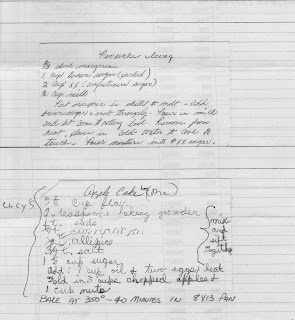 Penuche Icing
stick margarine
1 cup brown sugar (packed)
2 cup XX (confectioners sugar)
cup milk
Put margarine in skillet to melt - add
brown sugar + melt through. Pour in milk
and let come to rolling boil. Remove from
heat, place in cold water to cool to
touch. Pour mixture into XX sugar.
Apple Cake
Lucy's
cup flour
2 teaspoons baking powder
soda
cinnamon
allspice
salt
1 cup sugar
mix
and
sift
together
add: 1 cup oil + two eggs, beat
fold in 3 cups chopped apples &
1 cup nuts
BAKE AT 350° - 40 MINUTES IN 8X13 PAN